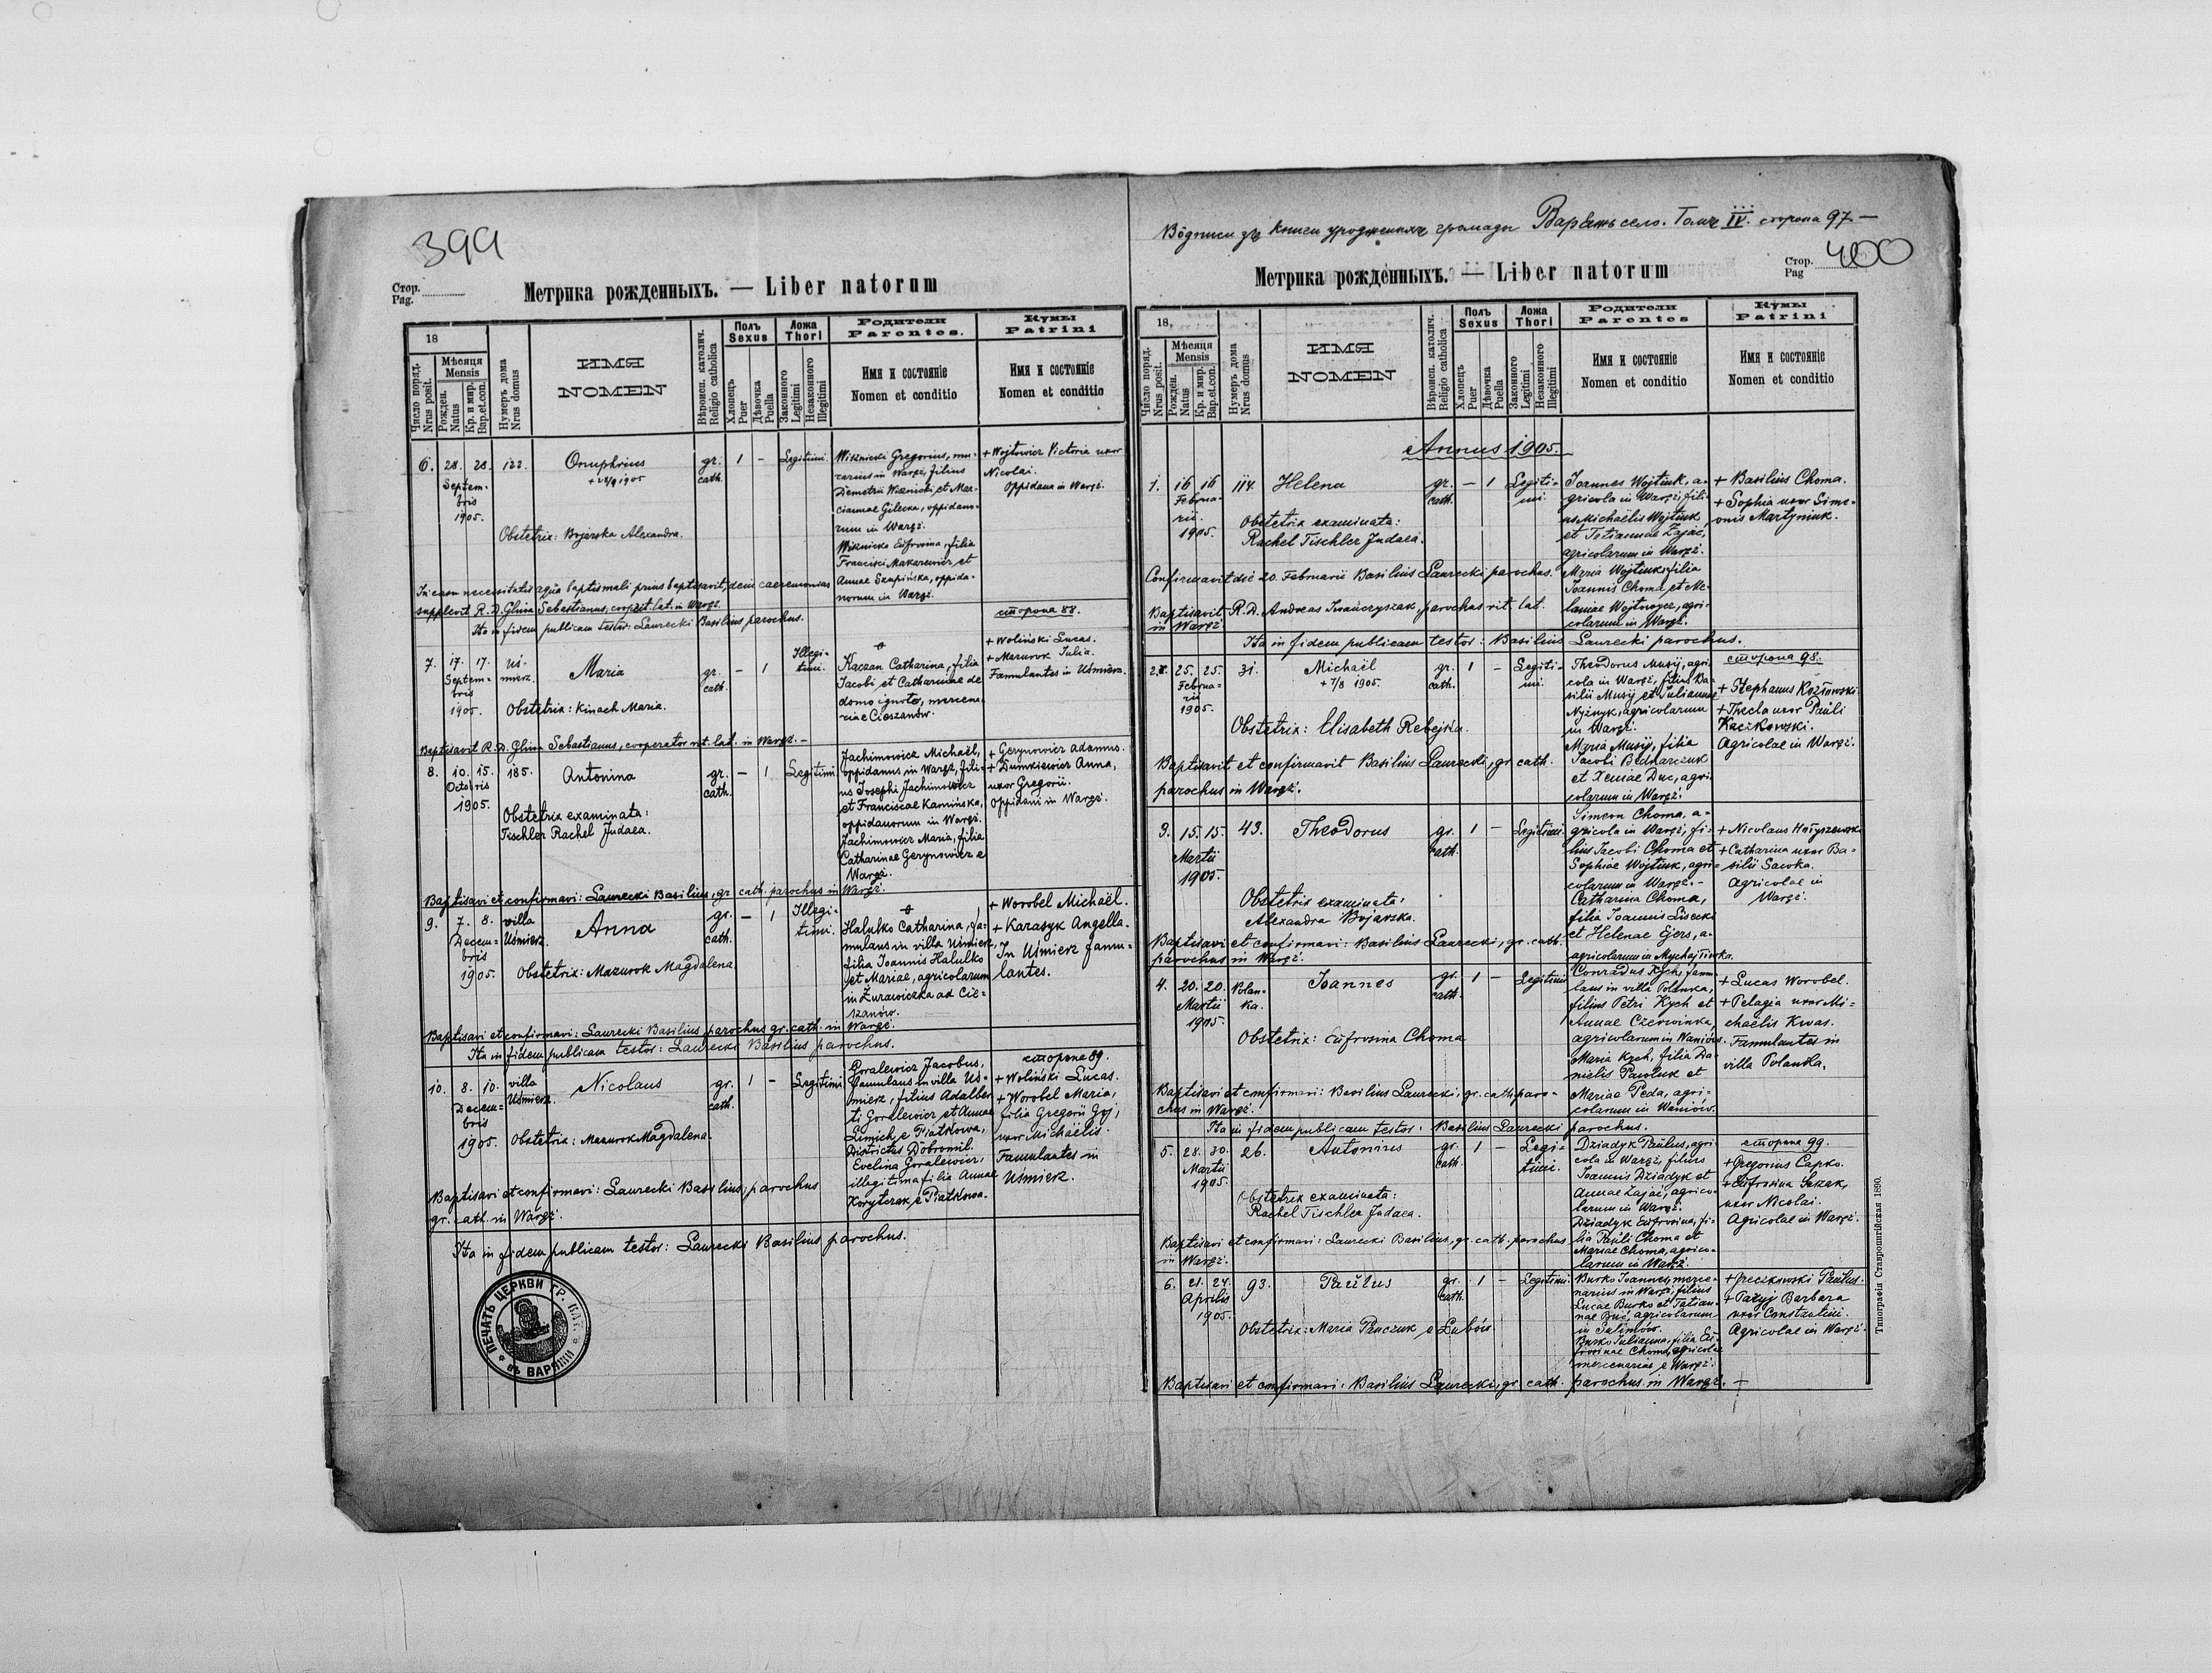 399
Стор.
Pag.
Метрика рожденныхъ. — Liber natorum
18
Число поряд.
Nrus posit.
Мѣсяця
Mensis
Рожден.
Natus
Кр. и мир.
Bap.et.con.
Нумеръ дома
Nrus domus
ИМЯ
NOMEN
Вѣроисп. католич.
Religio catholica
Полъ
Sexus
Хлопецъ
Puer
Дѣвочка
Puella
Ложа
Thori
Законного
Legitimi
Незаконного
Illegitimi
Родители
Parentes.
Имя и состояніе
Nomen et conditio
Кумы
Patrini
Имя и состояніе
Nomen et conditio
6. 28. 28. 122. Onuphrius gr. 1 – Legitimi.
+ 28/9 1905 cath.
Septem-
bris
1905.
Obstetrix: Bojarska Alexandra.
Wisznicki Gregorius, mu-
rarius in Waręż, filius
Demetrii Wisznicki et Mar-
ciannae Gilecka, oppidano-
rum in Waręż.
Wisznicka Eufrosina, filia
Francisci Makarewicz, et
Annae Szupińska, oppida-
norum in Waręż.
+ Wojtowicz Victoria uxor
Nicolai.
Oppidana in Waręż.
In casu necessitatis aquâ baptismali prius baptisavit, dein caeremonias
supplevit R. D. Glina Sebastianus, cooperat. lat. in Waręż.
Ita in fidem publicam testor: Laurecki Basilius parochus.
сторона 88.
7. 17. 17. Uś- Maria gr. – 1 Illegi-
mierz. cath. timi.
Septem-
bris
1905. Obstetrix: Kinach Maria.
Kaczan Catharina, filia
Jacobi et Catharinae de
domo ignoto, mercena-
ria e Cieszanów.
+ Woliński Lucas.
+ Mazurok Julia.
Famulantes in Uśmierz.
Baptisavit R. D. Glina Sebastianus, cooperator rit. lat. in Waręż. –
8. 10. 15. 185. Antonina gr. – 1 Legitimi
Octobris cath.
1905.
Obstetrix examinata:
Tischler Rachel Judaea.
Jachimowicz Michaël,
oppidanus in Waręż, fili-
us Josephi Jachimowicz
et Franciscae Kamińska,
oppidanorum in Waręż.
Jachimowicz Maria, filia
Catharinae Gerynowicz e
Waręż.
+ Gerynowicz Adamus.
+ Dumkiewicz Anna,
uxor Gregorii.
Oppidani in Waręż.
Baptisavi et confirmavi: Laurecki Basilius, gr. cath. parochus in Waręż.
9. 7. 8. villa Anna gr. – 1 Illegi-
Uśmierz. cath. timi.
Decem-
bris
1905. Obstetrix: Mazurok Magdalena
Halulko Catharina, fa-
mulans in villa Uśmierz,
filia Joannis Halulko
et Mariae, agricolarum
in Żurawiczka ad Cie-
szanów.
+ Worobel Michaël.
+ Karasyk Angella.
In Uśmierz famu-
lantes.
Baptisavi et confirmavi: Laurecki Basilius parochus gr. cath. in Waręż.
Ita in fidem publicam testor: Laurecki Basilius parochus.
сторона 89.
10. 8. 10. villa Nicolaus gr. 1 – Legitimi
Uśmierz. cath.
Decem-
bris
1905. Obstetrix: Mazurok Magdalena.
Goralewicz Jacobus,
famulans in villa Uś-
mierz, filius Adalber-
ti Goralewicz et Annae
Limich e Piatkowa,
Districtus Dobromil.
Evelina Goralewicz,
illegitima filia Annae
Korytczak e Piatkowa.
+ Woliński Lucas.
+ Worobel Maria,
filia Gregorii Goj,
uxor Michaëlis.
Famulantes in
Uśmierz.
Baptisavi et confirmavi: Laurecki Basilius, parochus
gr. cath. in Waręż.
Ita in fidem publicam testor: Laurecki Basilius parochus.
ПЕЧАТЬ ЦЕРКВИ ГР. КАТ. ВЪ ВАРЯЖИ
Водписи зъ книги уродженихъ громады Варяжъ село. Томъ IV. сторона 97. —
Стор.
Pag
400
Метрика рожденныхъ. — Liber natorum
18
Число поряд.
Nrus posit.
Мѣсяця
Mensis
Рожден.
Natus
Кр. и мир.
Bap.et.con.
Нумеръ дома
Nrus domus
ИМЯ
NOMEN
Вѣроисп. католич.
Religio catholica
Полъ
Sexus
Хлопецъ
Puer
Дѣвочка
Puella
Ложа
Thori
Законного
Legitimi
Незаконного
Illegitimi
Родители
Parentes
Имя и состояніе
Nomen et conditio
Кумы
Patrini
Имя и состояніе
Nomen et conditio
Annus 1905.
1. 16 16 114. Helena gr. – 1 Legiti-
cath. mi.
Februa-
rii.
1905.
Obstetrix examinata:
Rachel Tischler Judaea.
Joannes Wojtiuk, a-
gricola in Waręż, fili-
us Michaëlis Wojtiuk
et Tatiannae Zając,
agricolarum in Waręż.
Maria Wojtiuk, filia
Joannis Choma, et Me-
laniae Wojtnayca, agri-
colarum in Waręż.
+ Basilius Choma.
+ Sophia uxor Sime-
onis Martyniuk.
Confirmavit die 20. Februarii Basilius Laurecki, parochus.
Baptisavit R. D. Andreas Iwańczyszak, parochus rit. lat.
in Waręż
Ita in fidem publicam testor: Basilius Laurecki parochus.
сторона 98.
2. 25. 25. 31. Michaël gr. 1 – Legiti-
+ 7/8 1905. cath. mi.
Februa-
rii
1905.
Obstetrix: Elisabeth Rebejka.
Theodorus Musij, agri-
cola in Waręż, filius Ba-
silii Musij et Julianae
Nyżnyk, agricolarum
in Waręż.
Maria Musij, filia
Jacobi Bednarczuk
et Xeniae Duc, agri-
colarum in Waręż.
+ Stephanus Kozłowski.
+ Thecla uxor Pauli
Kaczkowski.
Agricolae in Waręż.
Baptisavit et confirmavit Basilius Laurecki, gr. cath.
parochus in Waręż.
3. 15. 15. 43. Theodorus gr. 1 – Legitimi
cath.
Martii
1905.
Obstetrix examinata:
Alexandra Bojarska.
Simeon Choma, a-
gricola in Waręż, fi-
lius Jacobi Choma et
Sophiae Wojtiuk, agri-
colarum in Waręż. –
Catharina Choma,
filia Joannis Lisecki
et Helenae Gjers, a-
agricolarum in Mychajłówka.
+ Nicolaus Hołyszewski
+ Catharina uxor Ba-
silii Sawka.
Agricolae in
Waręż.
Baptisavi et confirmavi: Basilius Laurecki, gr. cath.
parochus in Waręż.
4. 20. 20. Polan- Joannes gr. 1 – Legitimi
ka. cath.
Martii
1905.
Obstetrix: Eufrosina Choma
Conradus Kych, famu-
lans in villa Polanka,
filius Petri Kych et
Annae Czerwinka,
agricolarum in Waniów.
Maria Kych, filia Da-
nielis Pawluk et
Mariae Peda, agri-
colarum in Waniów.
+ Lucas Worobel.
+ Pelagia uxor Mi-
chaëlis Kwas.
Famulantes in
villa Polanka.
Baptisavi et confirmavi: Basilius Laurecki, gr. cath. paro-
chus in Waręż.
Ita in fidem publicam testor: Basilius Laurecki parochus.
сторона 99.
5. 28. 30. 26. Antoninus gr. 1 – Legi-
cath. timi.
Martii
1905.
Obstetrix examinata:
Rachel Tischler Judaea.
Dziadyk Paulus, agri-
cola in Waręż, filius
Joannis Dziadyk et
Annae Zając, agrico-
larum in Waręż.
Dziadyk Eufrosina, fi-
lia Pauli Choma et
Mariae Choma, agrico-
larum in Waręż.
+ Gregorius Capko.
+ Eufrosina Suzak,
uxor Nicolai.
Agricolae in Waręż.
Baptisavi et confirmavi: Laurecki Basilius, gr. cath. parochus
in Waręż.
6. 21. 24. 93. Paulus gr. 1 – Legitimi.
cath.
Aprilis
1905.
Obstetrix: Maria Panczuk e Lubów
Burko Joannes, merce-
narius in Waręż, filius
Lucae Burko et Tatian-
nae Buć, agricolarum
in Salimów.
Burko Julianna, filia Eu-
frosinae Choma, agricolae
mercenariae e Waręż.
+ Greczkowski Paulus.
+ Pażyj Barbara
uxor Constantini.
Agricolae in Waręż.
Baptisavi et confirmavi: Basilius Laurecki, gr. cath. parochus in Waręż. –
Типографія Ставропигійская 1890.